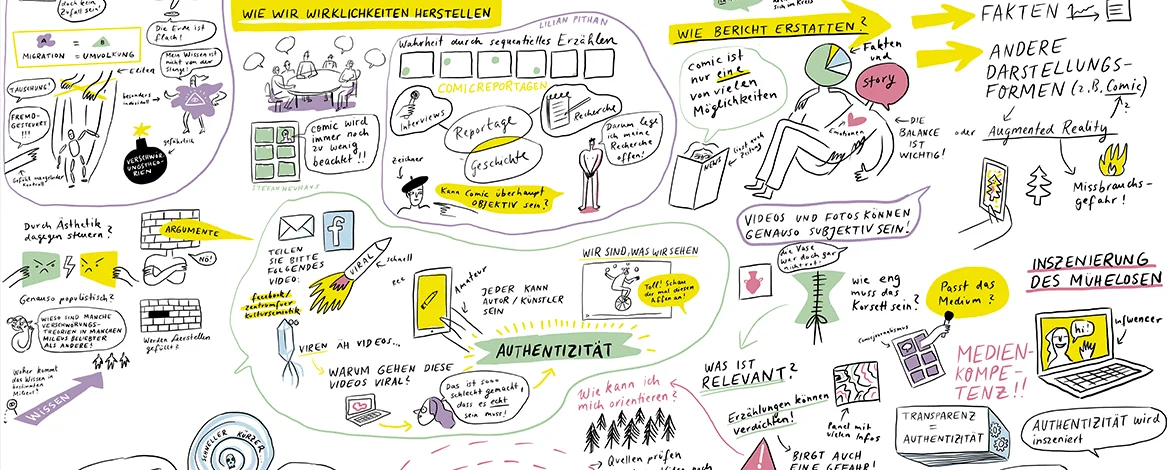 doch kein
Zufall sein!
Die Erde ist
flach!
MIGRATION = UMVOLKUNG
A
B
Mein Wissen ist
nicht von der
Stange!
Eliten
TÄUSCHUNG!
besonders
individuell
FREMD-
GESTEUERT
!!!
gefährlich
VERSCHWÖ-
RUNGSTHEO-
RIEN
Gefühl mangelnder
Kontrolle
WIE WIR WIRKLICHKEITEN HERSTELLEN
COMIC WIRD
immer noch
zu wenig
beachtet!!
STEFAN NEUHAUS
LILIAN PITHAN
Wahrheit durch sequentielles Erzählen
COMICREPORTAGEN
Interviews
Reportage
Geschichte
Recherche
Zeichner
Kann Comic überhaupt
OBJEKTIV sein?
Darum lege
ich meine
Recherche
offen!
im Kreis
WIE BERICHT ERSTATTEN?
Comic ist
nur eine
von vielen
Möglichkeiten
Fakten
und
Story
Emotionen
NEWS
liegt an
Zeitung
DIE
BALANCE
IST
WICHTIG!
FAKTEN
ANDERE
DARSTELLUNGS-
FORMEN (z.B. Comic)
?
oder Augmented Reality
Missbrauchs-
gefahr!
VIDEOS UND FOTOS KÖNNEN
GENAUSO SUBJEKTIV SEIN!
Durch Ästhetik
dagegen steuern?
ARGUMENTE
NÖ!
Genauso populistisch?
WIESO SIND MANCHE
VERSCHWÖRUNGS-
THEORIEN IN MANCHEN
MILIEUS BELIEBTER
ALS ANDERE!
Werden Leerstellen
gefüllt?
Woher kommt
das Wissen in
bestimmten
Milieus?
WISSEN
TEILEN
SIE BITTE
FOLGENDES
VIDEO:
f
facebook/
zentrumfuer
kultursemiotik
VIRAL
schnell
VIREN ÄH VIDEOS...
WARUM GEHEN DIESE
VIDEOS VIRAL?
REC
Amateur
JEDER KANN
AUTOR / KÜNSTLER
SEIN
AUTHENTIZITÄT
Das ist sooo
schlecht gemacht,
dass es echt
sein muss!
WIR SIND, WAS WIR SEHEN
Toll! Schau
dir mal diesen
Affen an!
die Vase
war doch gar
nicht rot!
wie eng
muss das
Korsett sein?
Passt das
Medium?
Comicjournalismus
INSZENIERUNG
DES MÜHELOSEN
hi!
Influencer
MEDIEN-
KOMPE-
TENZ!!
WAS IST
RELEVANT?
Erzählungen können
verdichten!
Panel mit
vielen Infos
BIRGT AUCH
EINE GEFAHR!
TRANSPARENZ
= AUTHENTIZITÄT
AUTHENTIZITÄT wird
inszeniert
Wie kann ich
mich orientieren?
Quellen prüfen
SCHNELLER KÜRZER